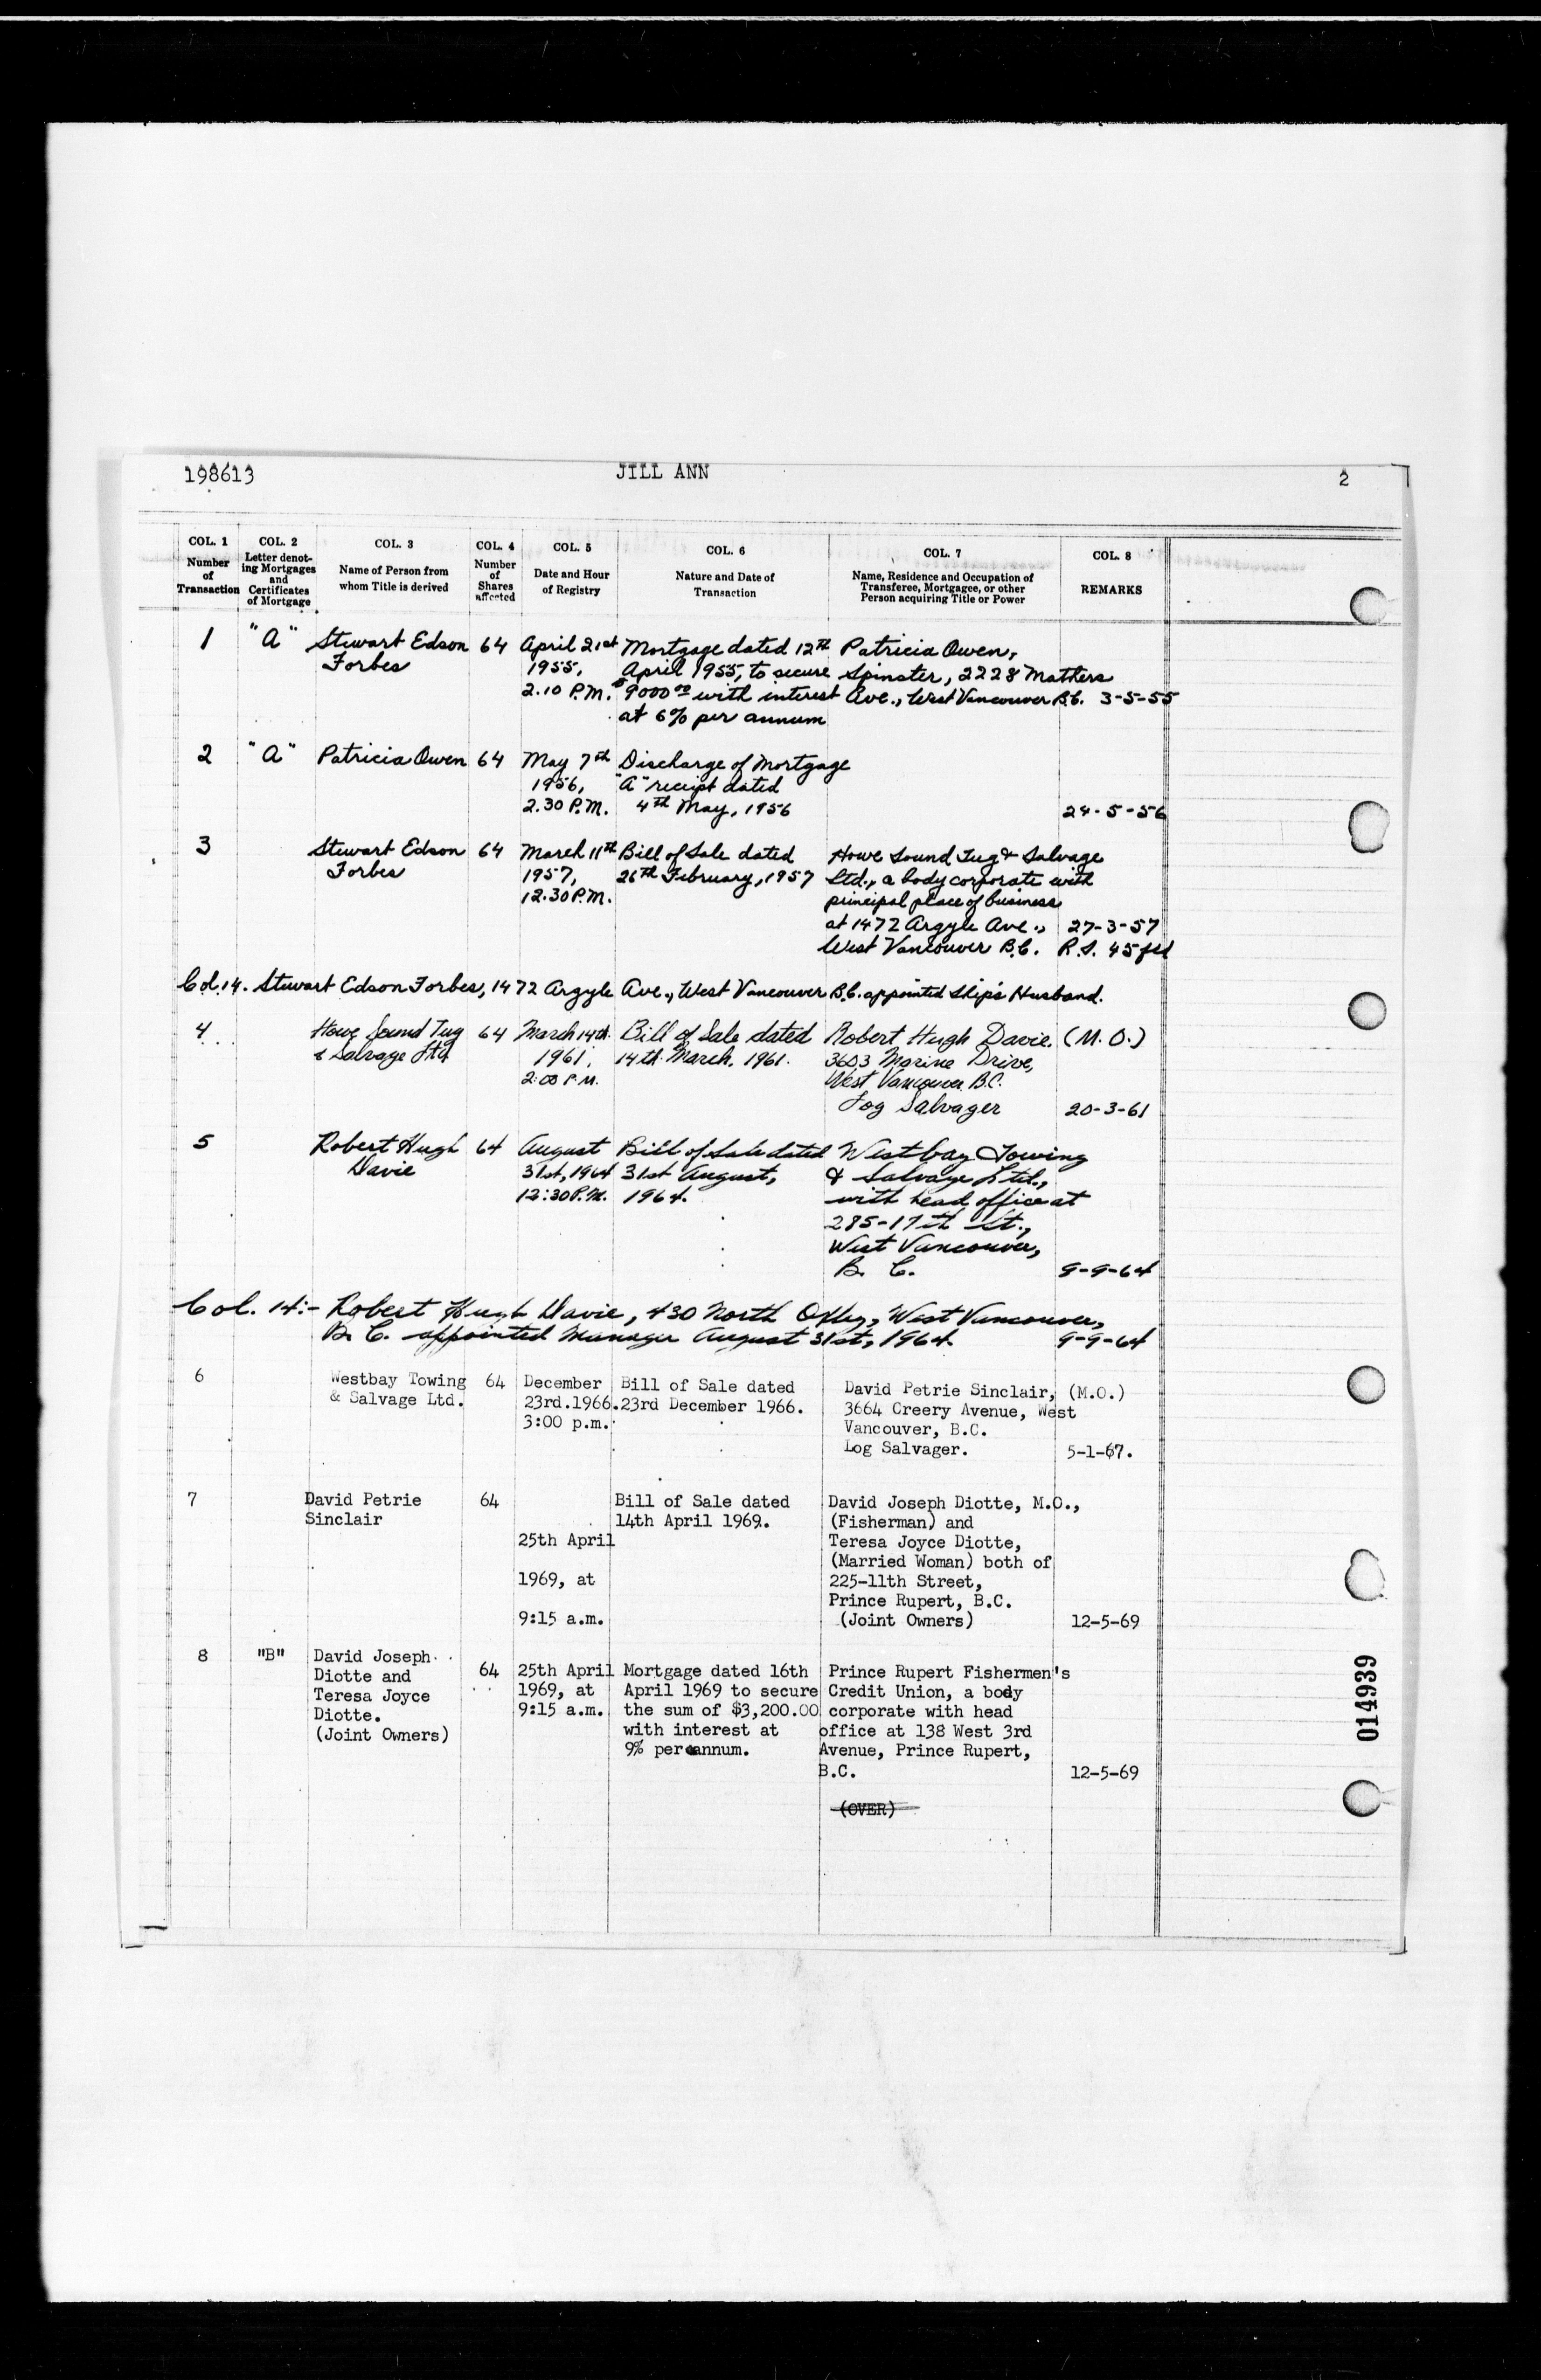 198613 JILL ANN 2
COL. 1 COL. 2 COL. 3 COL. 4 COL. 5 COL. 6 COL. 7 COL. 8
Number of Transaction
Letter denoting Mortgages and Certificates of Mortgage
Name of Person from whom Title is derived
Number of Shares affected
Date and Hour of Registry
Nature and Date of Transaction
Name, Residence and Occupation of Transferee, Mortgagee, or other Person acquiring Title or Power
REMARKS
1 "A" Stewart Edson 64 April 21st Mortgage dated 12th Patricia Owen,
Forbes 1955, April 1955, to secure Spinster, 2228 Mathers
2.10 P.M. $9000 00 with interest Ave., West Vancouver B.C. 3-5-55
at 6% per annum
2 "A" Patricia Owen 64 May 7th Discharge of Mortgage
1956, "A" receipt dated
2.30 P.M. 4th May, 1956 24-5-56
3 Stewart Edson 64 March 11th Bill of Sale dated Howe Sound Tug & Salvage
Forbes 1957, 26th February, 1957 Ltd., a body corporate with
12.30 P.M. principal place of business
at 1472 Argyle Ave., 27-3-57
West Vancouver B.C. R.S. 45
Col. 14. Stewart Edson Forbes, 1472 Argyle Ave., West Vancouver B.C. appointed Ship's Husband.
4 Howe Sound Tug 64 March 14th Bill of Sale dated Robert Hugh Davie. (M.O.)
& Salvage Ltd 1961. 14th March. 1961. 3603 Marine Drive,
2:00 P.M. West Vancouver B.C.
Log Salvager 20-3-61
5 Robert Hugh 64 August Bill of Sale dated Westbay Towing
Davie 31st, 1964 31st August, & Salvage Ltd.,
12:30 P.M. 1964. with head office at
285-17th St.,
West Vancouver,
B. C. 9-9-64
Col. 14:- Robert Hugh Davie, 430 North Oxley, West Vancouver,
B. C. appointed Manager August 31st, 1964. 9-9-64
6 Westbay Towing 64 December Bill of Sale dated David Petrie Sinclair, (M.O.)
& Salvage Ltd. 23rd.1966. 23rd December 1966. 3664 Creery Avenue, West
3:00 p.m. Vancouver, B.C.
Log Salvager. 5-1-67.
7 David Petrie 64 Bill of Sale dated David Joseph Diotte, M.O.,
Sinclair 14th April 1969. (Fisherman) and
25th April Teresa Joyce Diotte,
(Married Woman) both of
1969, at 225-11th Street,
Prince Rupert, B.C.
9:15 a.m. (Joint Owners) 12-5-69
8 "B" David Joseph
Diotte and 64 25th April Mortgage dated 16th Prince Rupert Fishermen's
Teresa Joyce 1969, at April 1969 to secure Credit Union, a body
Diotte. 9:15 a.m. the sum of $3,200.00 corporate with head
(Joint Owners) with interest at office at 138 West 3rd
9% per annum. Avenue, Prince Rupert,
B.C. 12-5-69
(OVER)
014939